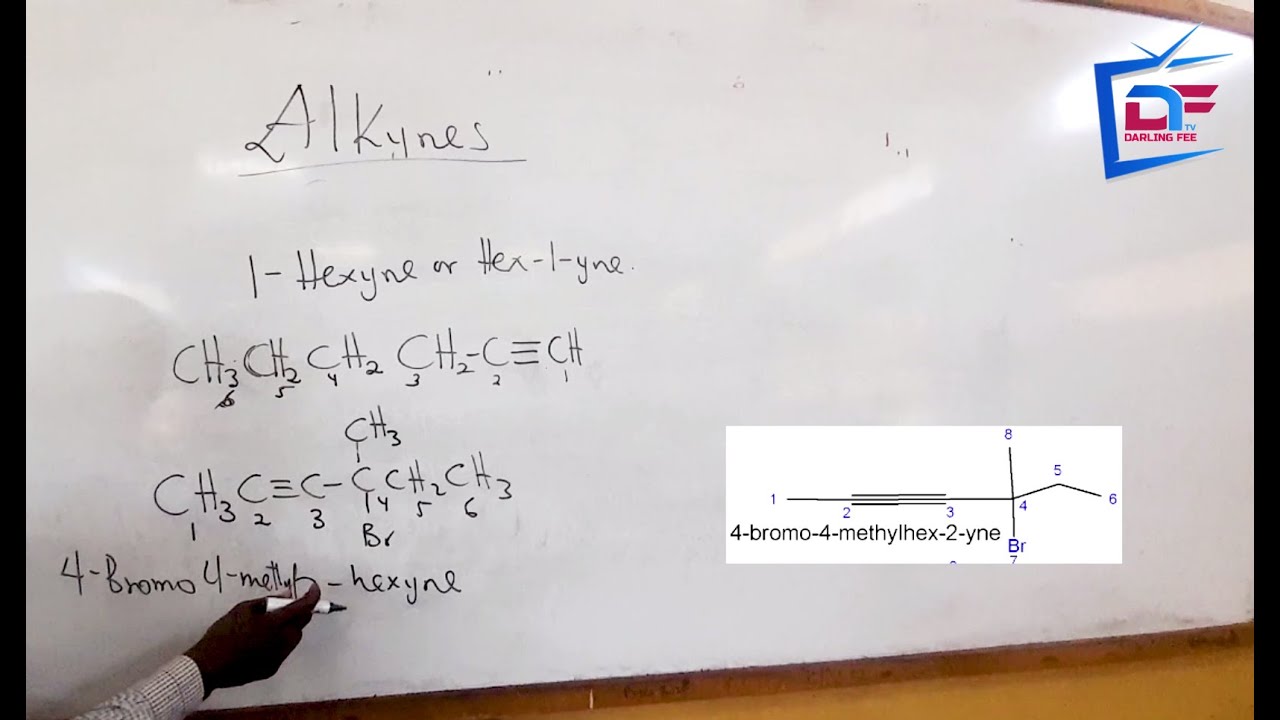 Alkynes
DF
TV
DARLING FEE
1-Hexyne or Hex-1-yne.
CH3 CH2 CH2 CH2-C≡CH
6 5 4 3 2 1
CH3
CH3C≡C-CCH2CH3
1 2 3 4 5 6
Br
4-Bromo 4-methyl-hexyne
8
5
1
2
3
4
6
4-bromo-4-methylhex-2-yne
Br
7